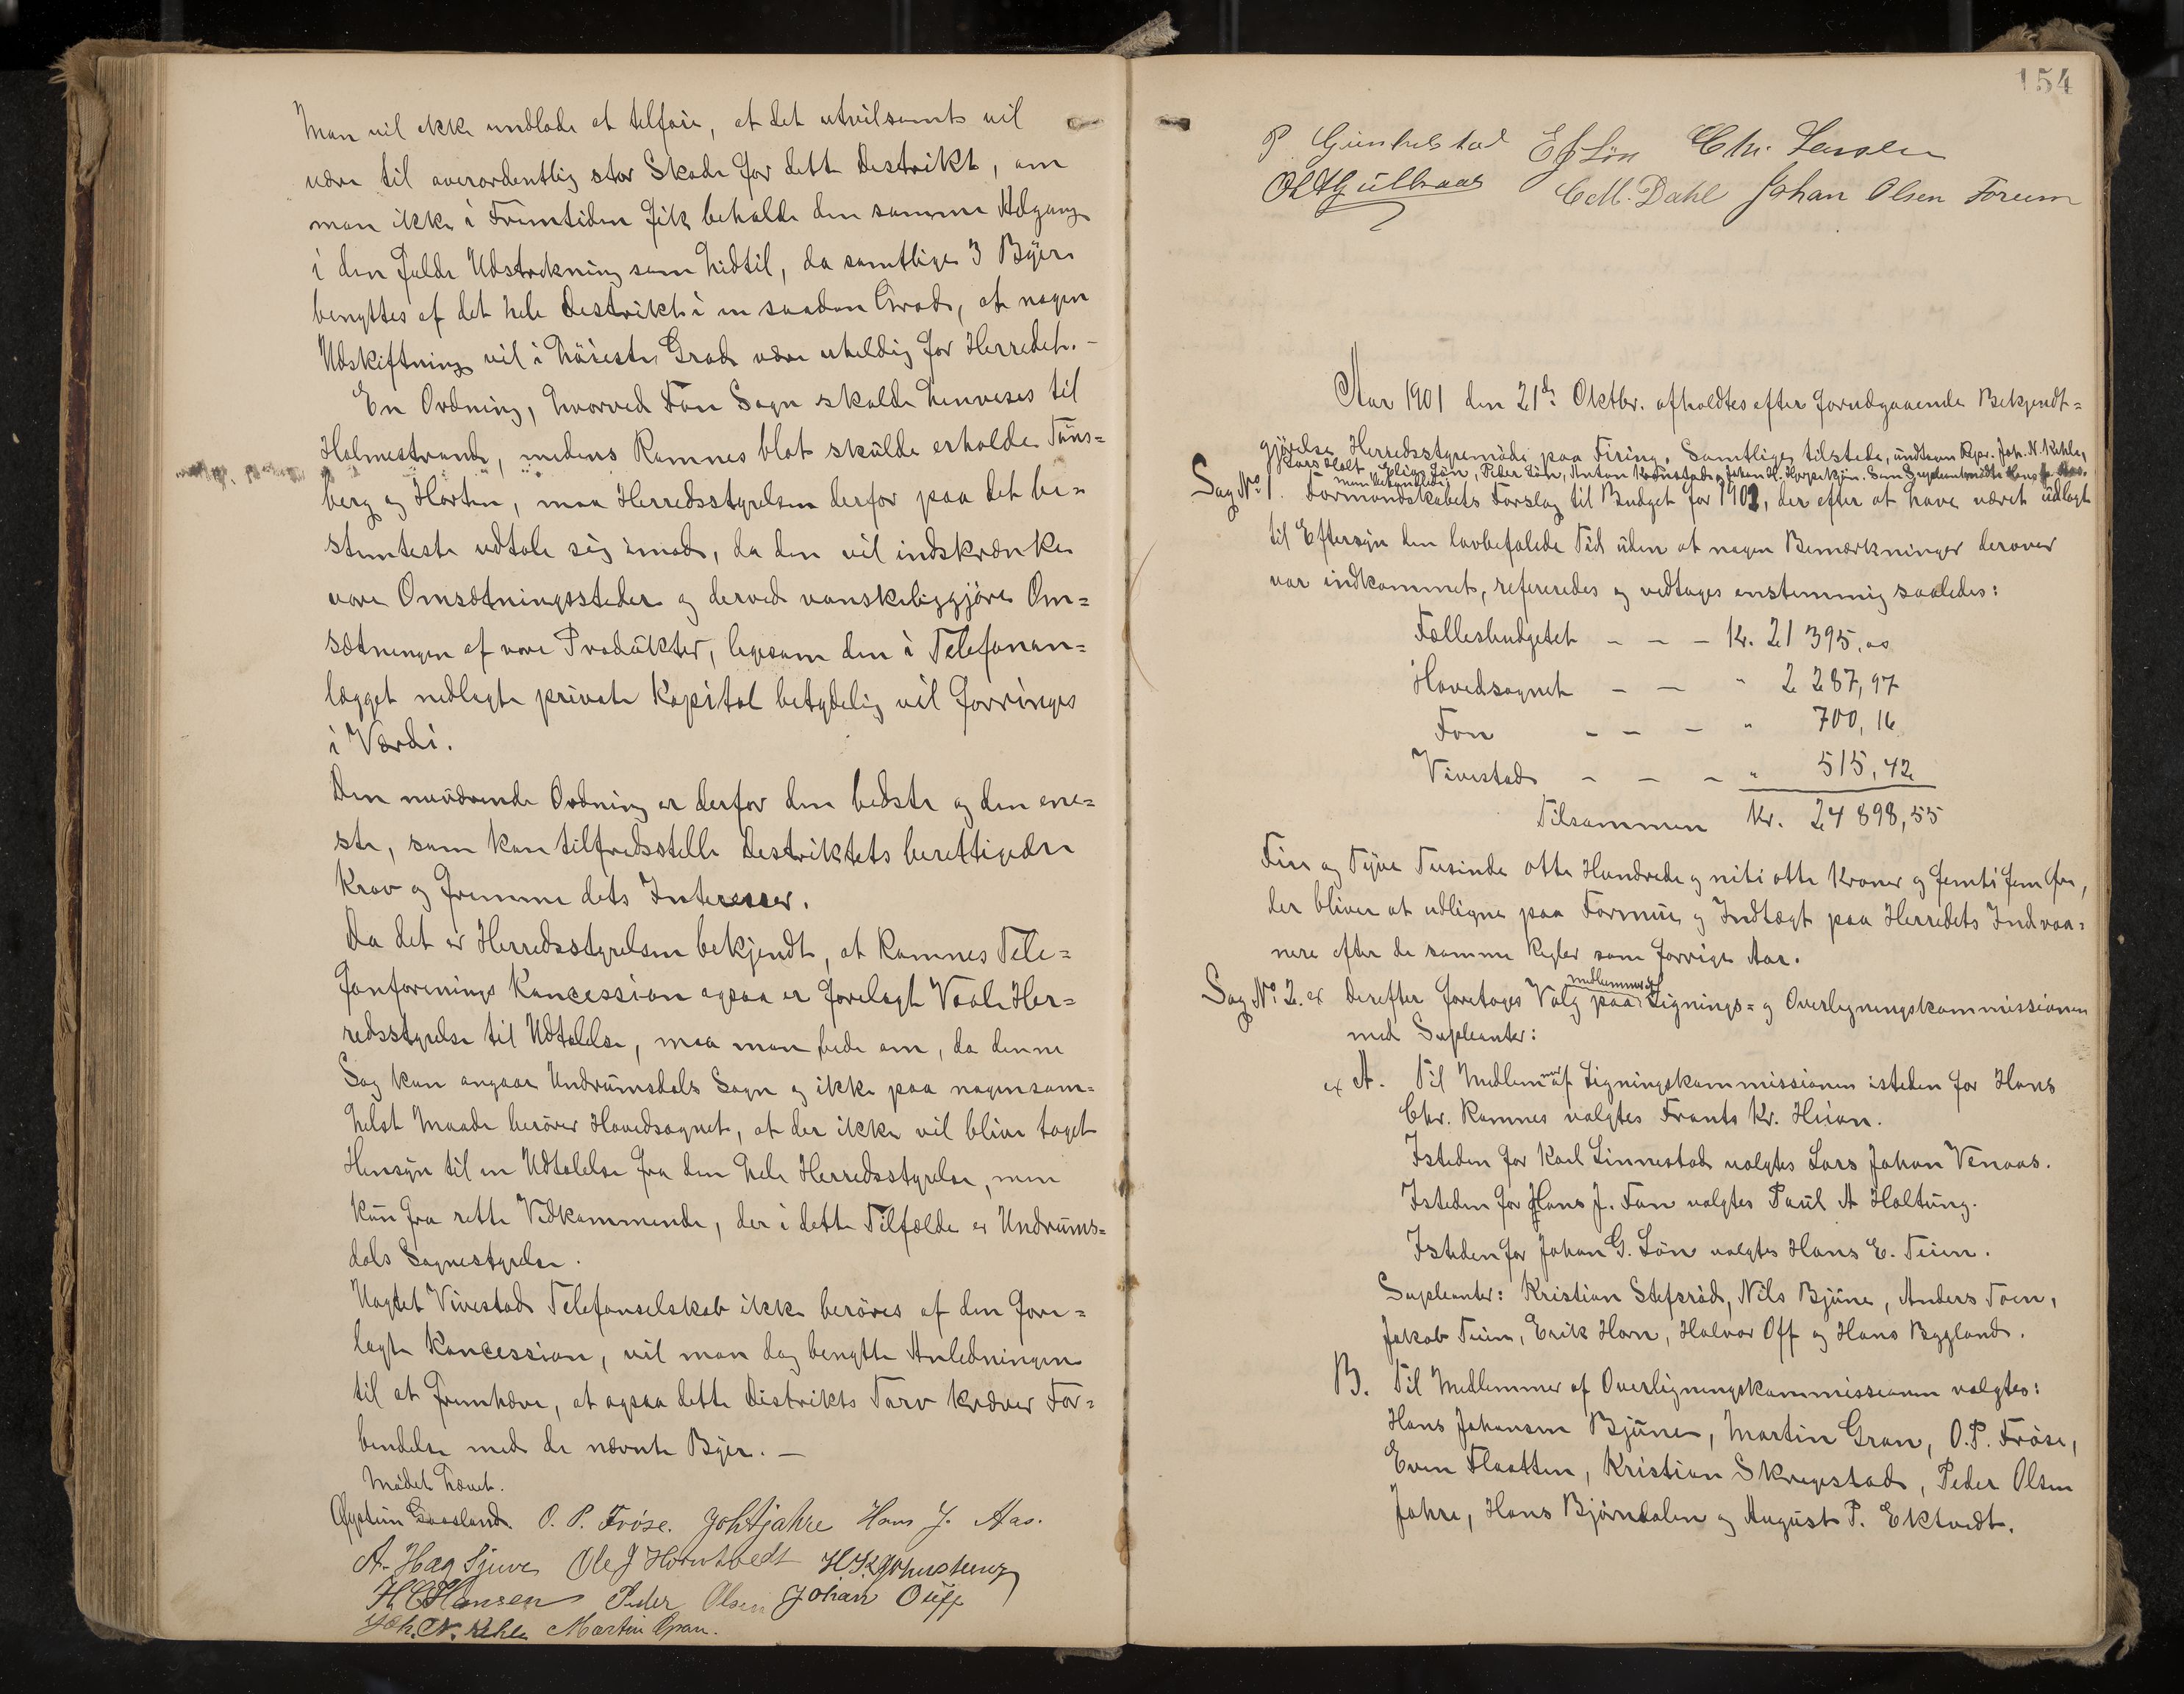 Man vil ikke undlade at tilføie, at det utvilsomt vil
være til overordentlig stor Skade for dette Destrikt, om
man ikke i Fremtiden fik beholde den samme Adgang
i den fulde Udstrekning som hidtil, da samtlige 3 Byer
benyttes af det hele Destrikt i en saadan Grad, at nogen
Udskiftning vil i høieste Grad være uheldig for Herredet. –
En Ordning, hvorved Fon Sogn skulde henvises til
Holmestrand, medens Ramnes blot skulde erholde Tøns=
berg og Horten, maa Herredsstyrelsen derfor paa det be=
stemteste udtale sig imod, da den vil indskrænke
vore Omsætningssteder og derved vanskeliggjøre Om=
sætningen af vore Produkter, ligesom den i Telefonan=
lægget nedlagte private Kapital betydelig vil forringes
i Værdi.
Den nuværende Ordning er derfor den bedste og den ene=
ste, som kan tilfredsstille Destriktets berettigede
Krav og fremme dets Interesser.
Da det er Herredsstyrelsen bekjendt, at Ramnes Tele=
fonforenings Koncession ogsaa er forelagt Vaale Her=
redsstyrelse til Udtalelse, maa man bede om, da denne
Sag kun angaar Undrumsdals Sogn og ikke paa nogensom=
helst Maade berører Hovedsognet, at der ikke vil blive taget
Hensyn til en Udtalelse fra den hele Herredsstyrelse, men
kun fra rette Vedkommende, der i dette Tilfælde er Undrums=
dals Sognestyrelse.
Uagtet Vivestad Telefonselskab ikke berøres af den fore=
lagte Koncession, vil man dog benytte Anledningen
til at fremhæve, at ogsaa dette Distrikts Tarv kræver For=
bindelse med de nævnte Byer. –
Mødet hævet.
Øystein Gaasland. O. P. Frøse. Joh Hjahre Hans J. Aas.
A. Hag Sjuve Ole J Horntvedt
H. C. Hansen Peder Olsen Johan Ouff
Joh. N. Kehle Martin Gran.
154
P Gunhelstad E J Løn Chr. Larsen
C. M. Dahl Johan Olsen Foreum
Aar 1901 den 21de Oktbr. afholdtes efter forudgaaende Bekjendt=
gjørelse Herredsstyremøde paa Firing. Samtlige tilstede, undtagen Repr. Joh. N. Kehle,
Lars Holt, Elias Løn, Peder Løn, Anton Kronstad og Johan H. Horpestjøn. Som Supleant mødte Hans J. Aas.
man behandlede
Sag No. 1. Formandskabets Forslag til Budget for 1902, der efter at have været udlagt
til Eftersyn den lovbefalede Tid uden at nogen Bemærkninger derover
var indkommet, refereredes og vedtoges enstemmig saaledes:
Fællesbudgetet – – – Kr. 21 395,00
Hovedsognet – – " 2 287,97
Fon – – – " 700,16
Vivestad – – – " 515,42
Tilsammen Kr. 24 898,55
Fire og Tyve Tusinde otte Hundrede og nitiotte Kroner og femtifem Øre,
der bliver at udligne paa Formue og Indtægt paa Herredets Indvaa=
nere efter de samme Regler som forrige Aar.
medlemmer af
Sag No. 2. ex Derefter foretoges Valg paa Lignings= og Overligningskommissionen
med Supleanter:
ex A. Til Medlemmer af Ligningskommissionen isteden for Hans
Chr. Ramnes valgtes Frants Kr. Huan.
Isteden for Karl Linnestad valgtes Lars Johan Venaas.
Isteden for Hans J. Fon valgtes Paul A Holtung.
Isteden for Johan G. Løn valgtes Hans E. Teien.
Supleanter: Kristian Stefsrød, Nils Bjune, Anders Foen,
Jakob Teien, Erik Horn, Halvor Off og Hans Bygland.
B. Til Medlemmer af Overligningskommissionen valgtes:
Hans Johansen Bjune, Martin Gran, O. P. Frøse,
Even Flaatten, Kristian Skregestad, Peder Olsen
Jahre, Hans Bjørndalen og August P. Ektvedt.